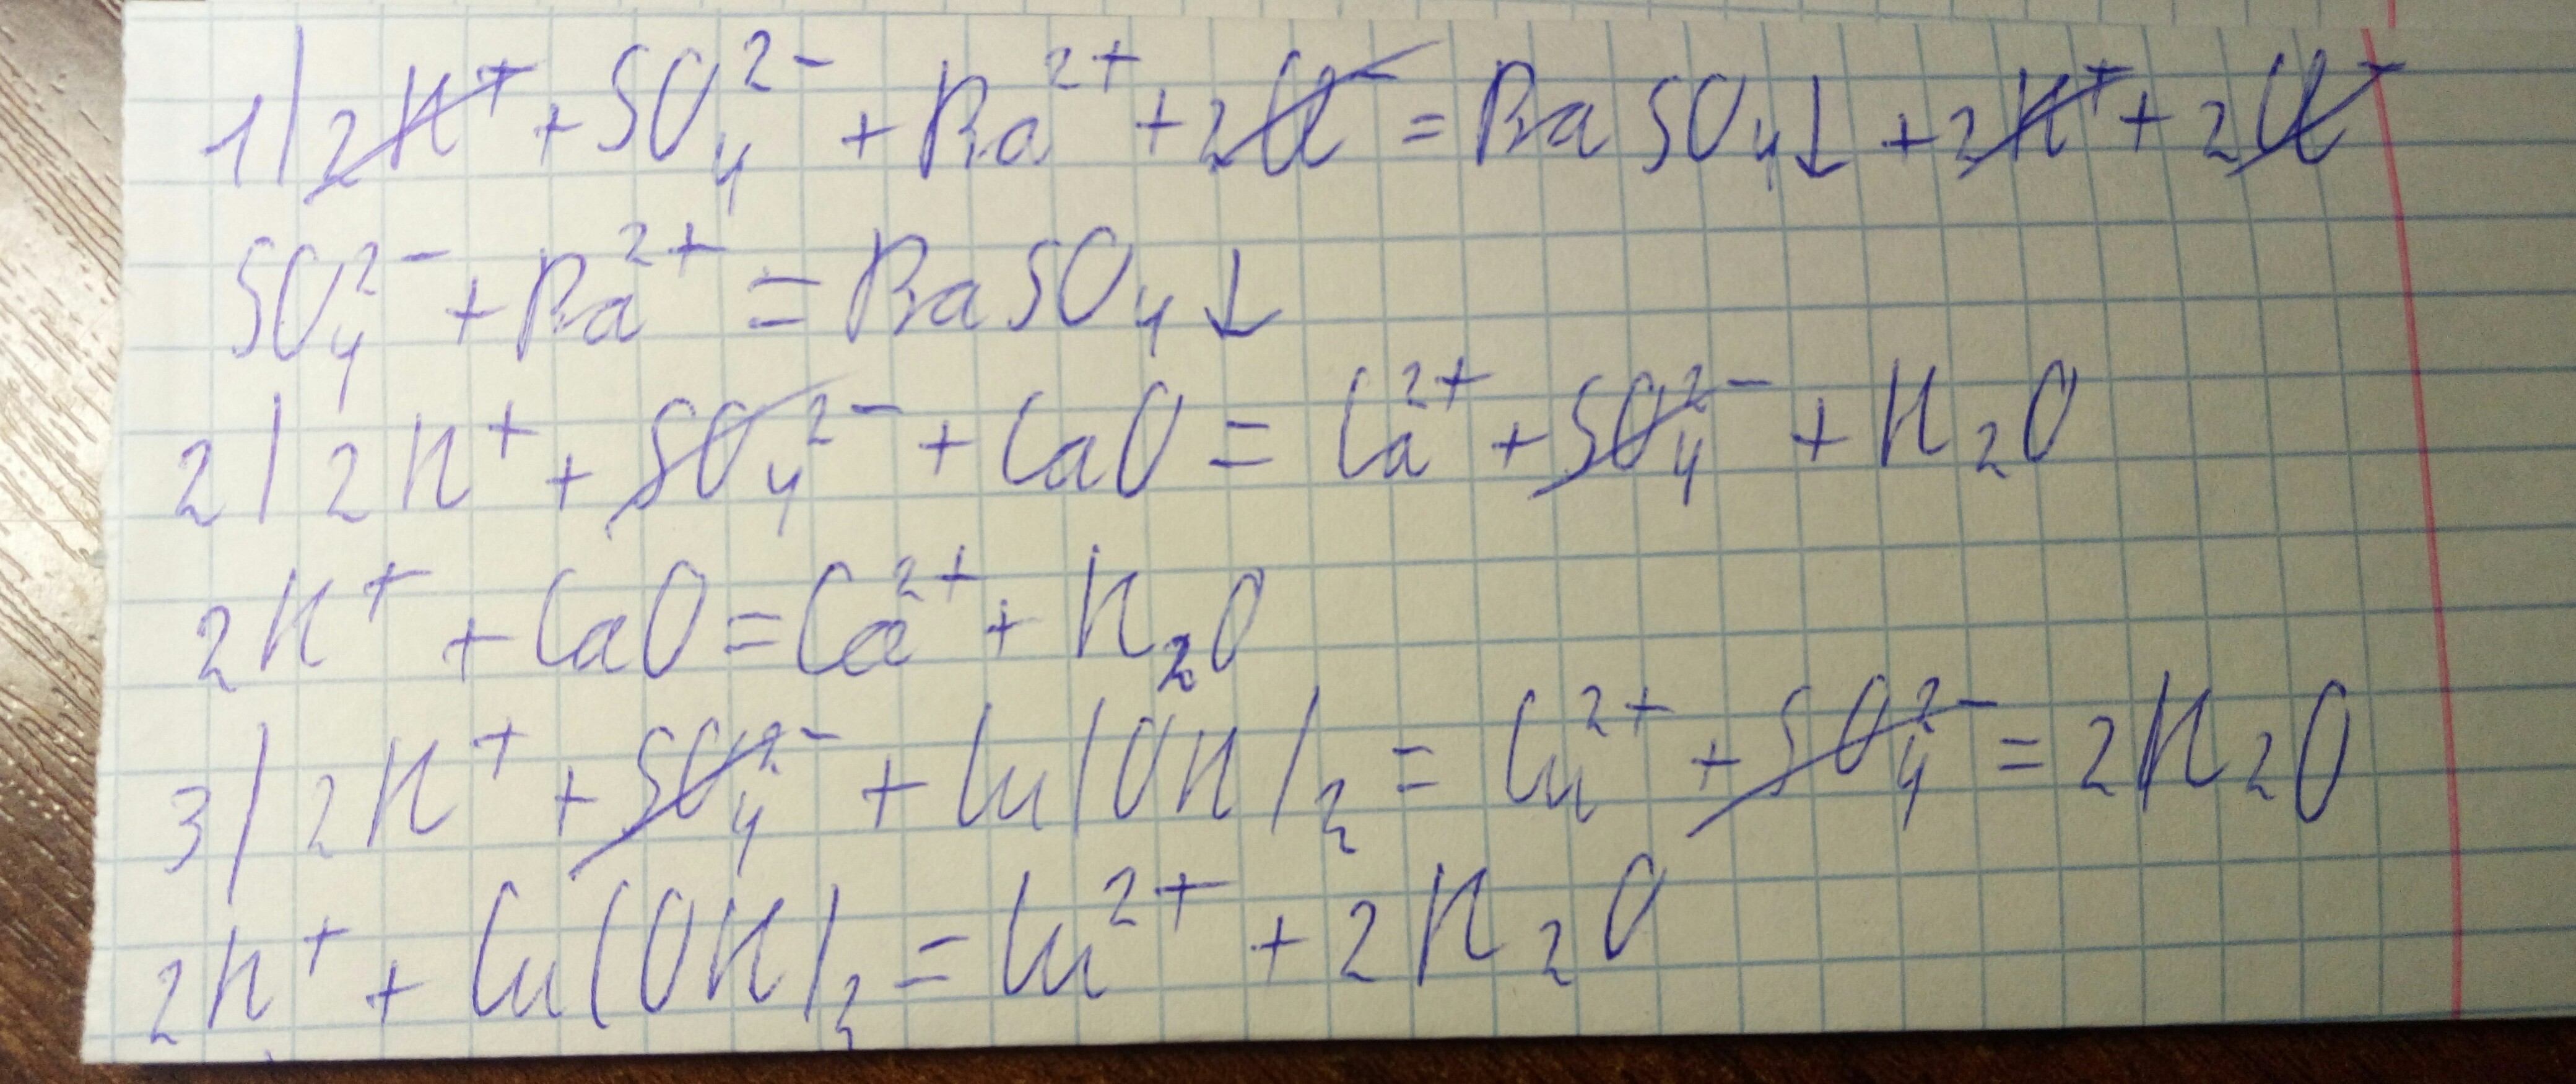 1) 2H⁺ + SO₄²⁻ + Ba²⁺ + 2Cl⁻ = BaSO₄↓ + 2H⁺ + 2Cl⁻
SO₄²⁻ + Ba²⁺ = BaSO₄↓
2) 2H⁺ + SO₄²⁻ + CaO = Ca²⁺ + SO₄²⁻ + H₂O
2H⁺ + CaO = Ca²⁺ + H₂O
3) 2H⁺ + SO₄²⁻ + Cu(OH)₂ = Cu²⁺ + SO₄²⁻ = 2H₂O
2H⁺ + Cu(OH)₂ = Cu²⁺ + 2H₂O